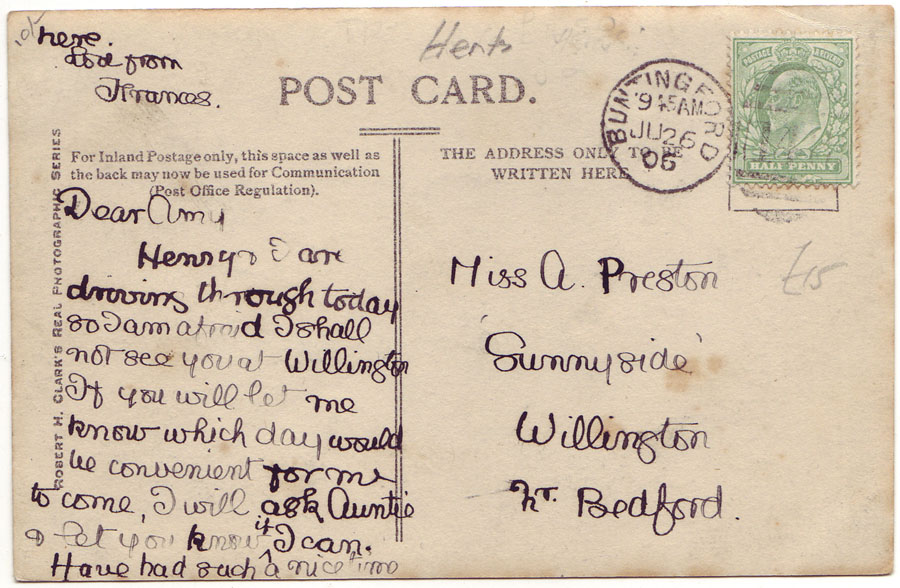 here.
Love from
Frances.
Herts
POST CARD.
BUNTINGFORD
9 45AM
JU 26
06
POSTAGE
HALF PENNY
For Inland Postage only, this space as well as
the back may now be used for Communication
(Post Office Regulation).
THE ADDRESS ONLY TO BE
WRITTEN HERE
ROBERT H. CLARK'S REAL PHOTOGRAPHIC SERIES
Dear Amy
Henry & I are
driving through today
so I am afraid I shall
not see you at Willington
If you will let me
know which day would
be convenient for me
to come, I will ask Auntie
& let you know if I can.
Have had such a nice time
Miss A. Preston
'Sunnyside'
Willington
Nr. Bedford.
£15